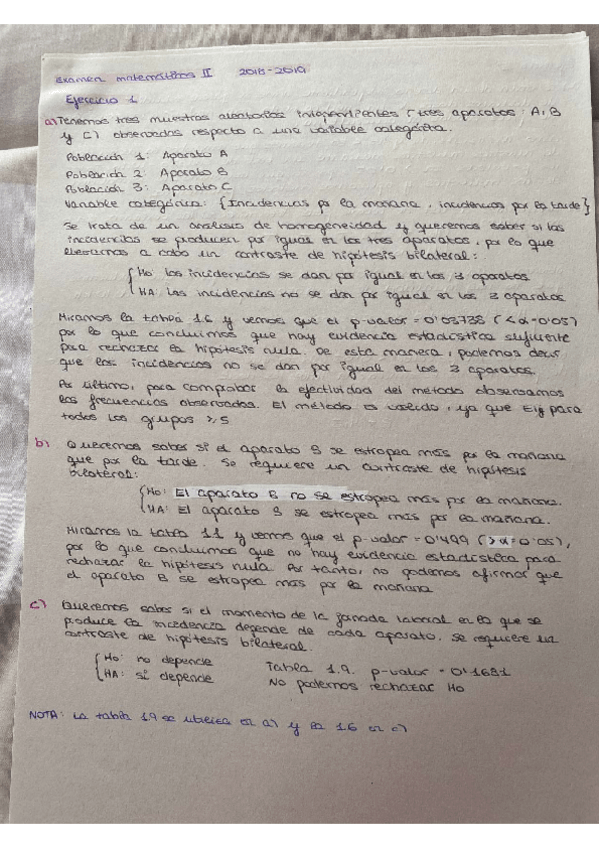 Examen matemáticas II 2018-2019
Ejercicio 1
a) Tenemos tres muestras aleatorias independientes (tres aparatos: A, B
y C) observadas respecto a una variable categórica.
Población 1: Aparato A
Población 2: Aparato B
Población 3: Aparato C
Variable categórica: {Incidencias por la mañana, incidencias por la tarde}
Se trata de un análisis de homogeneidad y queremos saber si las
incidencias se producen por igual en los tres aparatos, por lo que
llevamos a cabo un contraste de hipótesis bilateral:
{ H0: las incidencias se dan por igual en los 3 aparatos
HA: las incidencias no se dan por igual en los 3 aparatos
Miramos la tabla 1.6 y vemos que el p-valor = 0'03738 (< α=0'05)
por lo que concluimos que hay evidencia estadística suficiente
para rechazar la hipótesis nula. De esta manera, podemos decir
que las incidencias no se dan por igual en los 3 aparatos.
Por último, para comprobar la efectividad del método observamos
las frecuencias observadas. El método es válido, ya que Eij para
todos los grupos ≥ 5
b) Queremos saber si el aparato B se estropea más por la mañana
que por la tarde. Se requiere un contraste de hipótesis
bilateral:
{ H0: El aparato B no se estropea más por la mañana.
HA: El aparato B se estropea más por la mañana.
Miramos la tabla 1.1 y vemos que el p-valor = 0'499 (> α = 0'05),
por lo que concluimos que no hay evidencia estadística para
rechazar la hipótesis nula. Por tanto, no podemos afirmar que
el aparato B se estropea más por la mañana
c) Queremos saber si el momento de la jornada laboral en la que se
produce la incidencia depende de cada aparato. Se requiere un
contraste de hipótesis bilateral.
{ H0: no depende Tabla 1.9. p-valor = 0'1681
HA: sí depende No podemos rechazar H0
NOTA: La tabla 1.9 se utiliza en a) y la 1.6 en c)